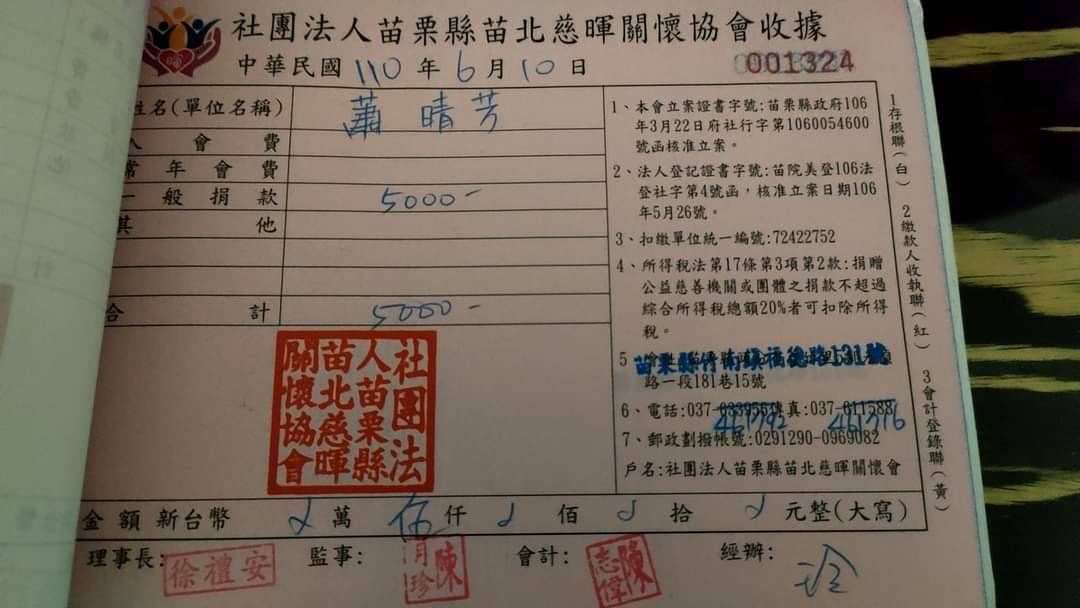 社團法人苗栗縣苗北慈暉關懷協會收據
中華民國 110 年 6 月 10 日
001324
姓名(單位名稱) 蕭晴芳
入會費
常年會費
一般捐款 5000-
其他
合計 5000-
1、本會立案證書字號:苗栗縣政府106
年3月22日府社行字第1060054600
號函核准立案。
2、法人登記證書字號:苗院美登106法
登社字第4號函,核准立案日期106
年5月26號。
3、扣繳單位統一編號:72422752
4、所得稅法第17條第3項第2款:捐贈
公益慈善機關或團體之捐款不超過
綜合所得稅總額20%者可扣除所得
稅。
5
苗栗縣竹南鎮福德路131號
路一段181巷15號
6、電話:037-633956傳真:037-611588
461792 461716
7、郵政劃撥帳號:0291290-0969082
戶名:社團法人苗栗縣苗北慈暉關懷會
1存根聯(白) 2繳款人收執聯(紅) 3會計登錄聯(黃)
社團法人苗栗縣苗北慈暉關懷協會
金額新台幣 萬 伍 仟 佰 拾 元整(大寫)
理事長: 徐禮安 監事: 陳月珍 會計: 陳志偉 經辦: